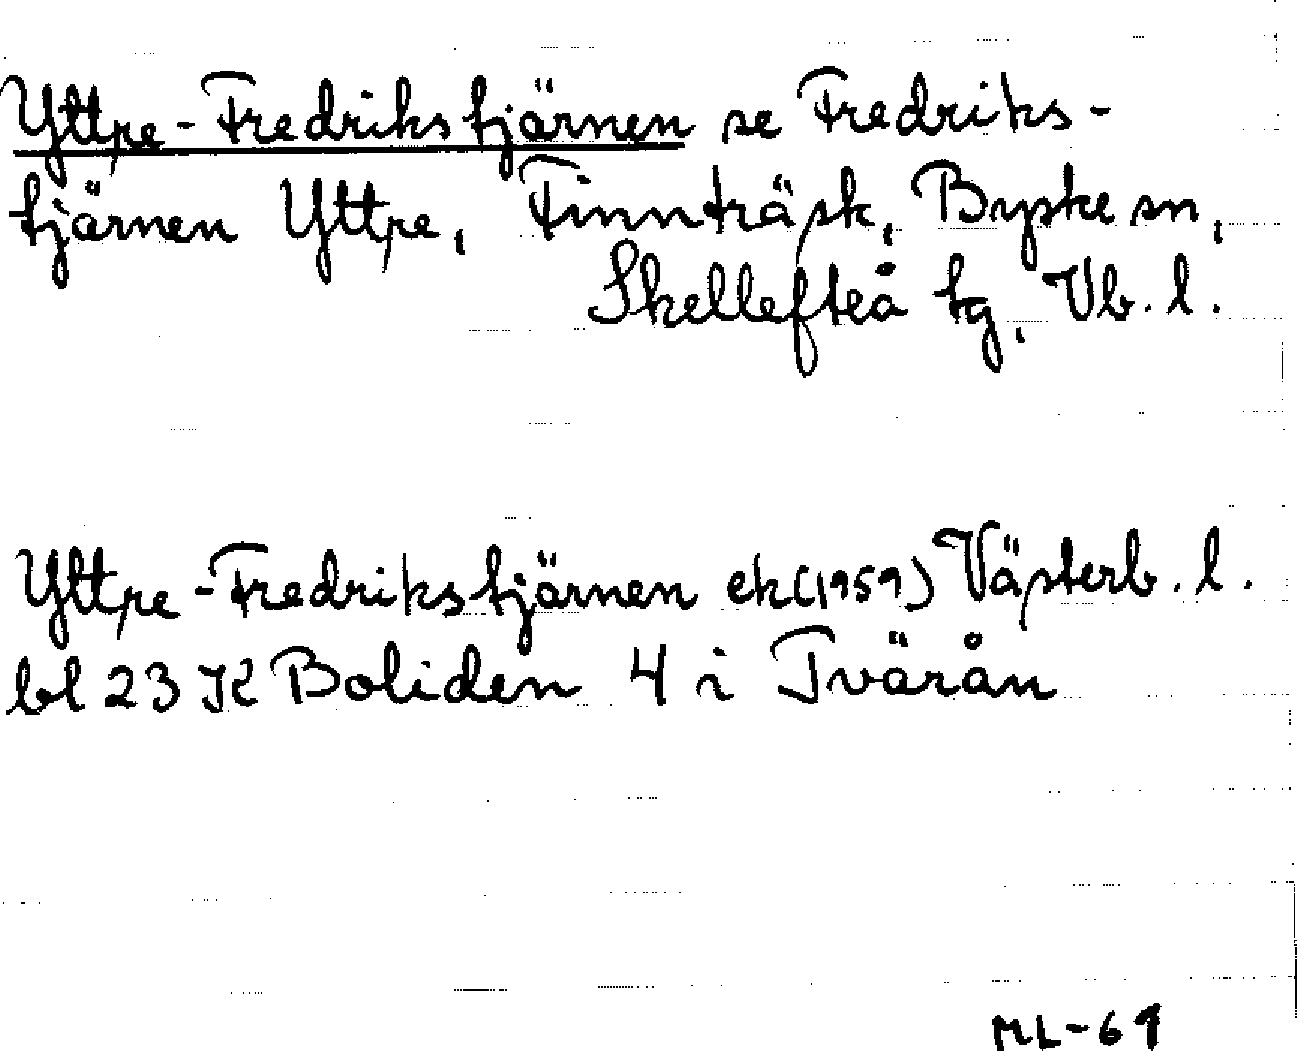 Yttre-Fredrikstjärnen se Fredriks-
tjärnen Yttre, Finnträsk, Byske sn,
Skellefteå tg, Vb. l.
Yttre-Fredrikstjärnen ek(1959) Västerb. l.
bl 23 K Boliden 4 i Tvärån
ML-69